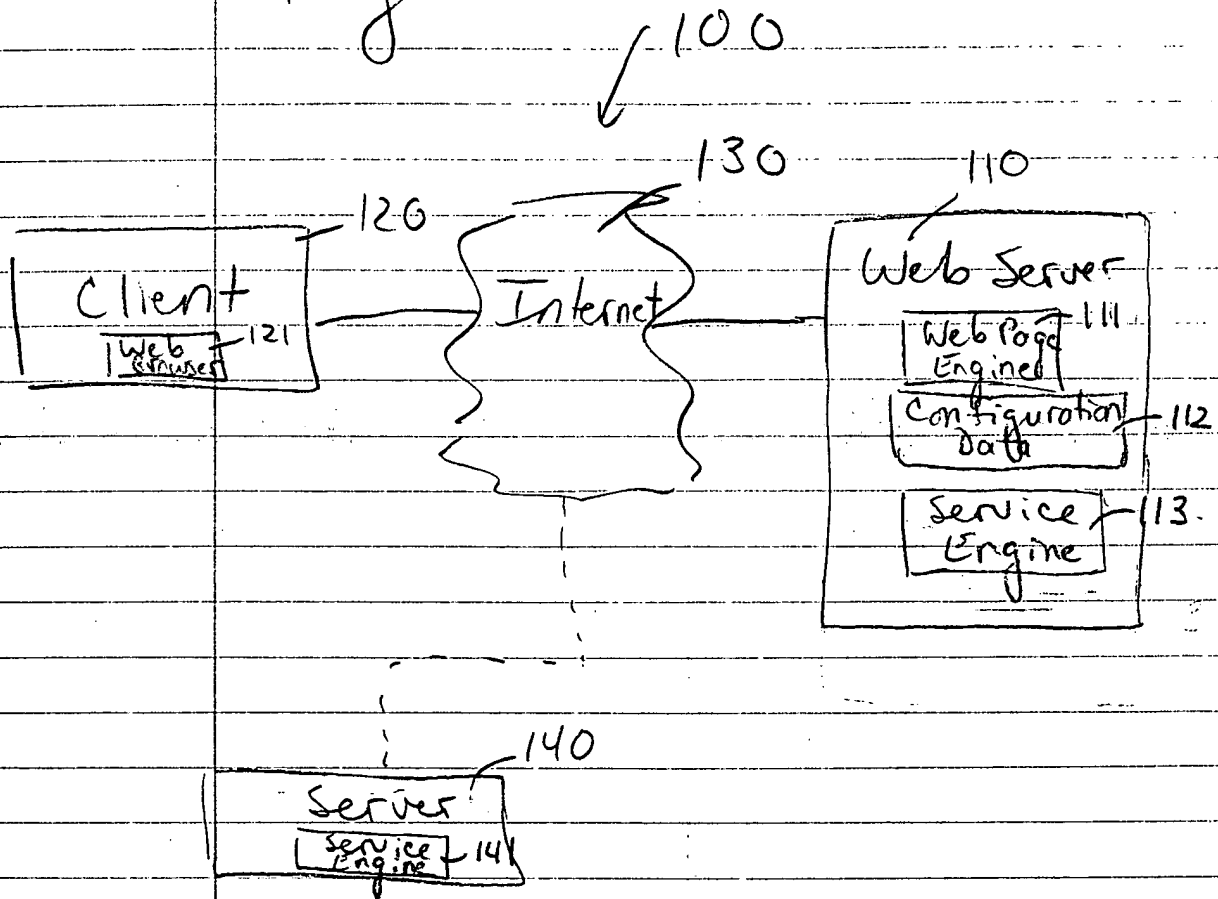 100
130
110
120
Client
Web
Browser
121
Internet
Web Server
Web Page
Engine
111
Configuration
Data
112
Service
Engine
113.
140
Server
Service
Engine
141